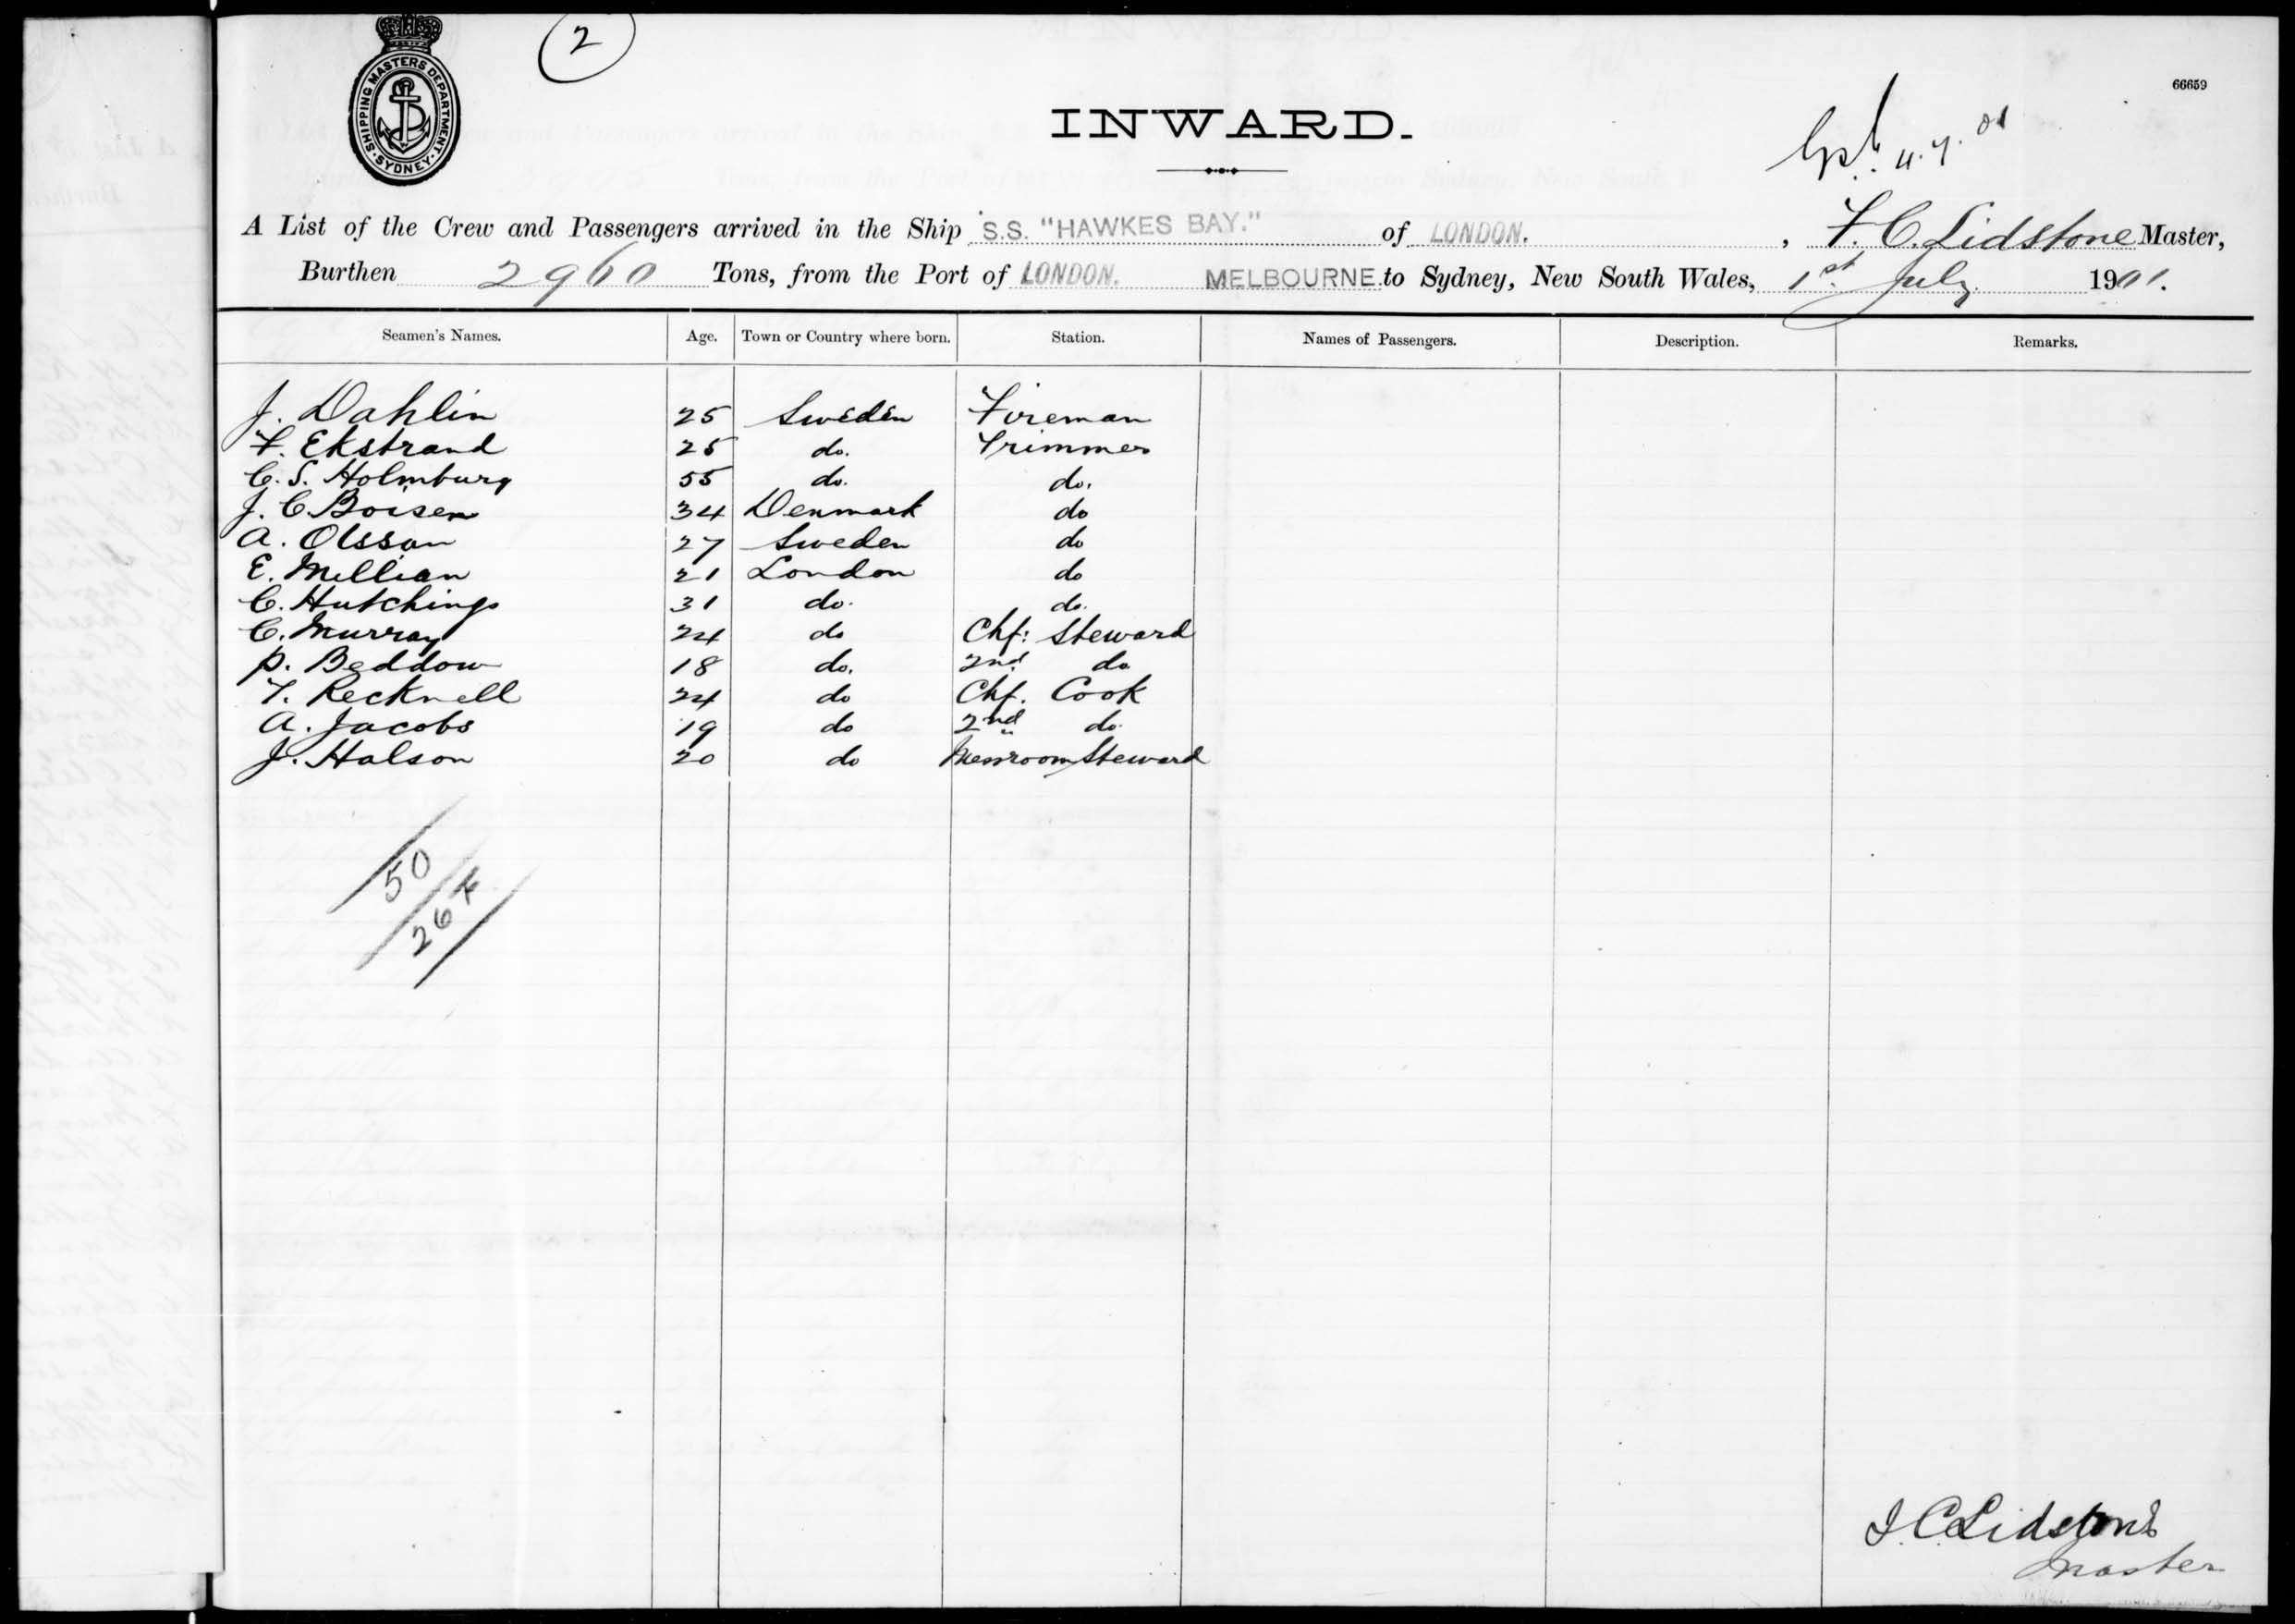 2
SHIPPING MASTERS DEPARTMENT. SYDNEY.
66659
INWARD.
4.7.01
A List of the Crew and Passengers arrived in the Ship S.S. "HAWKES BAY." of LONDON. , F. C. Lidstone Master,
Burthen 2960 Tons, from the Port of LONDON. MELBOURNE to Sydney, New South Wales, 1st July 1901.
Seamen's Names. Age. Town or Country where born. Station. Names of Passengers. Description. Remarks.
J. Dahlin 25 Sweden Fireman
F. Ekstrand 25 do. Trimmer
C. S. Holmburg 55 do. do.
J. C. Boisen 34 Denmark do
A. Olsson 27 Sweden do
E. Millian 21 London do
C. Hutchings 31 do. do.
C. Murray 24 do Chf: Steward
P. Beddow 18 do. 2nd do
T. Recknell 24 do Chf. Cook
A. Jacobs 19 do 2nd do.
J. Halson 20 do Messroom Steward
50
264
F. C. Lidstone
Master